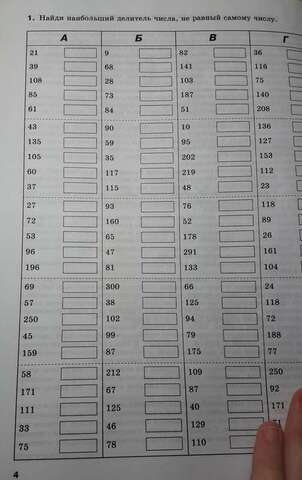 1. Найди наибольший делитель числа, не равный самому числу.
А Б В Г
21 9 82 36
39 68 141 116
108 28 103 75
85 73 187 140
61 84 51 208
43 90 10 136
135 59 95 127
105 35 202 153
60 117 219 112
37 115 48 23
27 93 76 118
72 160 52 89
53 65 178 26
96 47 291 161
196 81 133 104
69 300 66 24
57 38 125 118
250 102 94 72
45 99 79 188
159 87 175 77
58 212 109 250
171 67 87 92
111 125 40 171
33 46 129
75 78 110
4